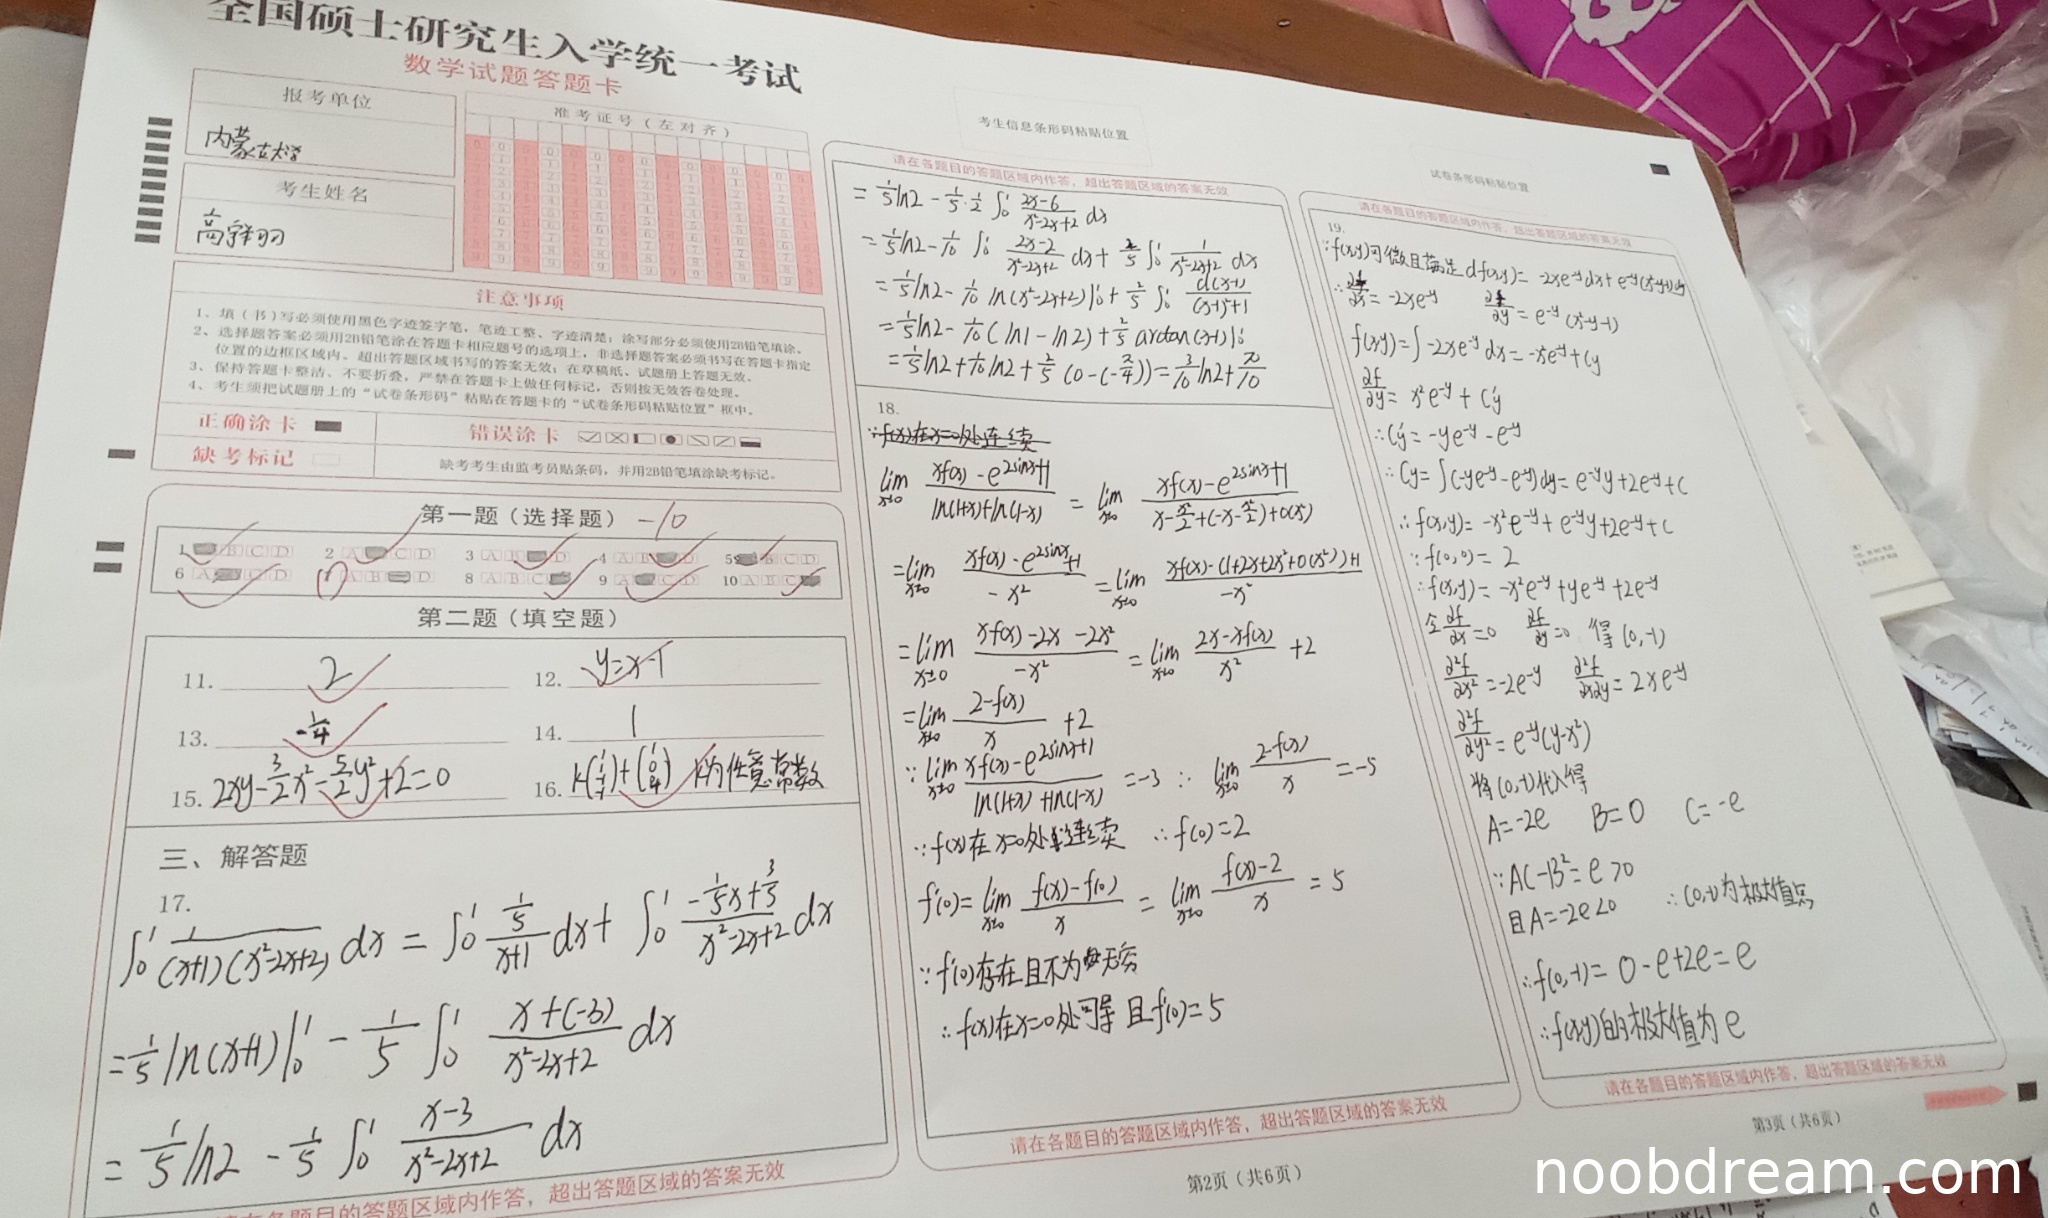 全国硕士研究生入学统一考试
数学试题答题卡
报考单位
考生姓名
准考证号（左对齐）
注意事项
1、填（书）写必须使用黑色字迹签字笔，笔迹工整、字迹清楚；涂写部分必须使用2B铅笔填涂。
2、选择题答案必须用2B铅笔涂在答题卡相应题号的选项上，非选择题答案必须书写在答题卡指定
位置的边框区域内。超出答题区域书写的答案无效；在草稿纸、试题册上答题无效。
3、保持答题卡整洁、不要折叠，严禁在答题卡上做任何标记，否则按无效答卷处理。
4、考生须把试题册上的“试卷条形码”粘贴在答题卡的“试卷条形码粘贴位置”框中。
正确涂卡
错误涂卡
缺考标记
缺考考生由监考员贴条码，并用2B铅笔填涂缺考标记。
第一题（选择题） -10
1 B C D 2 A C D 3 A B D 4 A B D 5 B C D
6 A C D 7 A B D 8 A B C 9 A C D 10 A B C
第二题（填空题）
11. 2
12. y=x-1
13. -1/4
14. 1
15. 2xy-3/2x²-5/2y²+2=0
16. k为任意常数
三、解答题
17.
∫₀¹ 1/((x+1)(x²-2x+2)) dx = ∫₀¹ (1/5)/(x+1) dx + ∫₀¹ (-1/5x+3/5)/(x²-2x+2) dx
= 1/5 ln(x+1)|₀¹ - 1/5 ∫₀¹ (x+(-3))/(x²-2x+2) dx
= 1/5 ln2 - 1/5 ∫₀¹ (x-3)/(x²-2x+2) dx
请在各题目的答题区域内作答，超出答题区域的答案无效
考生信息条形码粘贴位置
请在各题目的答题区域内作答，超出答题区域的答案无效
= 1/5 ln2 - 1/5·1/2 ∫₀¹ (2x-6)/(x²-2x+2) dx
= 1/5 ln2 - 1/10 ∫₀¹ (2x-2)/(x²-2x+2) dx + 2/5 ∫₀¹ 1/(x²-2x+2) dx
= 1/5 ln2 - 1/10 ln(x²-2x+2)|₀¹ + 2/5 ∫₀¹ d(x-1)/((x-1)²+1)
= 1/5 ln2 - 1/10 (ln1-ln2) + 2/5 arctan(x-1)|₀¹
= 1/5 ln2 + 1/10 ln2 + 2/5 (0-(-π/4)) = 3/10 ln2 + π/10
18.
∵f(x)在x=0处连续
lim x→0 (xf(x)-e^(2sinx)+1)/(ln(1+x)+ln(1-x)) = lim x→0 (xf(x)-e^(2sinx)+1)/(x-x²/2+(-x-x²/2)+o(x²))
= lim x→0 (xf(x)-e^(2sinx)+1)/(-x²) = lim x→0 (xf(x)-(1+2x+2x²+o(x²))+1)/(-x²)
= lim x→0 (xf(x)-2x-2x²)/(-x²) = lim x→0 (2x-xf(x))/x² +2
= lim x→0 (2-f(x))/x +2
∵ lim x→0 (xf(x)-e^(2sinx)+1)/(ln(1+x)+ln(1-x)) = -3 ∴ lim x→0 (2-f(x))/x = -5
∵f(x)在x=0处连续 ∴f(0)=2
f'(0)= lim x→0 (f(x)-f(0))/x = lim x→0 (f(x)-2)/x = 5
∵f'(0)存在且不为无穷
∴f(x)在x=0处可导 且f'(0)=5
请在各题目的答题区域内作答，超出答题区域的答案无效
第2页（共6页）
试卷条形码粘贴位置
请在各题目的答题区域内作答，超出答题区域的答案无效
19.
∵f(x,y)可微且满足df(x,y)= -2xe^(-y)dx+e^(-y)(x²-y-1)dy
∴ ∂f/∂x = -2xe^(-y) ∂f/∂y = e^(-y)(x²-y-1)
f(x,y)=∫-2xe^(-y)dx=-x²e^(-y)+Cy
∂f/∂y = x²e^(-y)+C'y
∴C'y=-ye^(-y)-e^(-y)
∴Cy=∫(-ye^(-y)-e^(-y))dy=e^(-y)y+2e^(-y)+C
∴f(x,y)=-x²e^(-y)+e^(-y)y+2e^(-y)+C
∵f(0,0)=2
∴f(x,y)=-x²e^(-y)+ye^(-y)+2e^(-y)
令 ∂f/∂x=0 ∂f/∂y=0 得(0,-1)
∂²f/∂x²=-2e^(-y) ∂²f/∂x∂y=2xe^(-y)
∂²f/∂y²=e^(-y)(y-x²)
将(0,-1)代入得
A=-2e B=0 C=-e
∵AC-B²=e>0
且A=-2e<0 ∴(0,-1)为极大值点
∴f(0,-1)=0-e+2e=e
∴f(x,y)的极大值为e
请在各题目的答题区域内作答，超出答题区域的答案无效
第3页（共6页）
noobdream.com